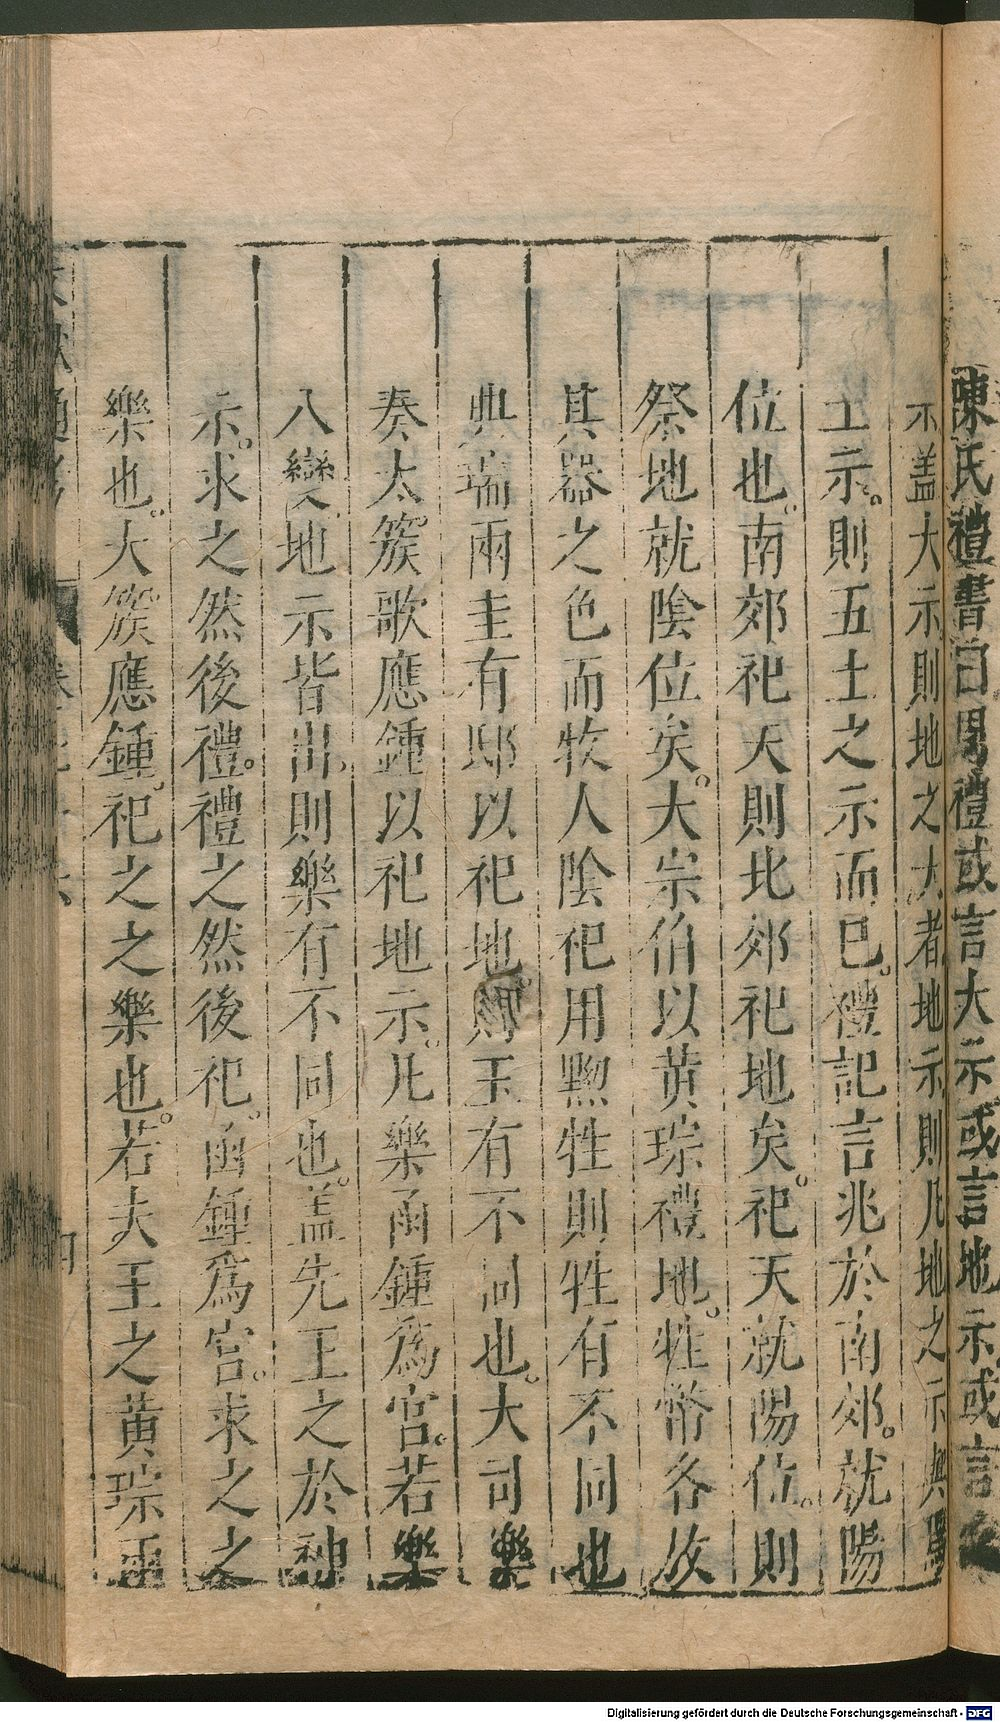 陳氏禮書曰周禮或言大示或言地示或言
示盖大示則地之大者地示則凡地之示與
土示則五土之示而巳禮記言兆於南郊就陽
位也南郊祀天則北郊祀地矣祀天就陽位則
祭地就陰位矣大宗伯以黄琮禮地牲幣各放
其器之色而牧人陰祀用黝牲則牲有不同也
典瑞兩圭有邸以祀地則玉有不同也大司樂
奏太簇歌應鍾以祀地示凡樂函鍾為宫若樂
八變地示皆出則樂有不同也盖先王之於神
示求之然後禮禮之然後祀函鍾為宫求之之
樂也大簇應鍾祀之之樂也若夫王之黄琮兩
Digitalisierung gefördert durch die Deutsche Forschungsgemeinschaft - DFG